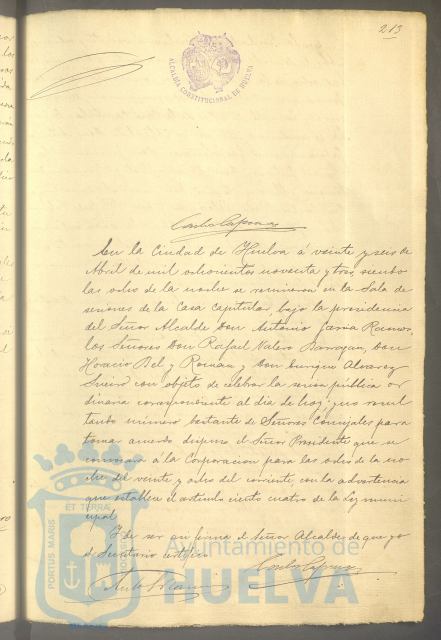 213
ALCALDÍA CONSTITUCIONAL DE HUELVA
En la Ciudad de Huelva á veinte y seis de
Abril de mil ochocientos noventa y tres, siendo
las ocho de la noche se reunieron en la Sala de
sesiones de la Casa Capitular, bajo la presidencia
del Señor Alcalde Don Antonio García Ramos,
los Señores Don Rafael Valero Barragan, Don
Horacio Bel y Roman y Don Enrique Alvarez
con objeto de celebrar la sesion pública or
dinaria correspondiente al dia de hoy; y no resul
tando número bastante de Señores Concejales para
tomar acuerdo dispuso el Señor Presidente que se
convocara á la Corporacion para las ocho de la no
che del veinte y ocho del corriente, con la advertencia
que establece el artículo ciento cuatro de la Ley muni
cipal.
Y de ser asi firma el Señor Alcalde de que yo
el Secretario certifico.
PORTUS MARIS ET TERRAE
Ayuntamiento de
HUELVA